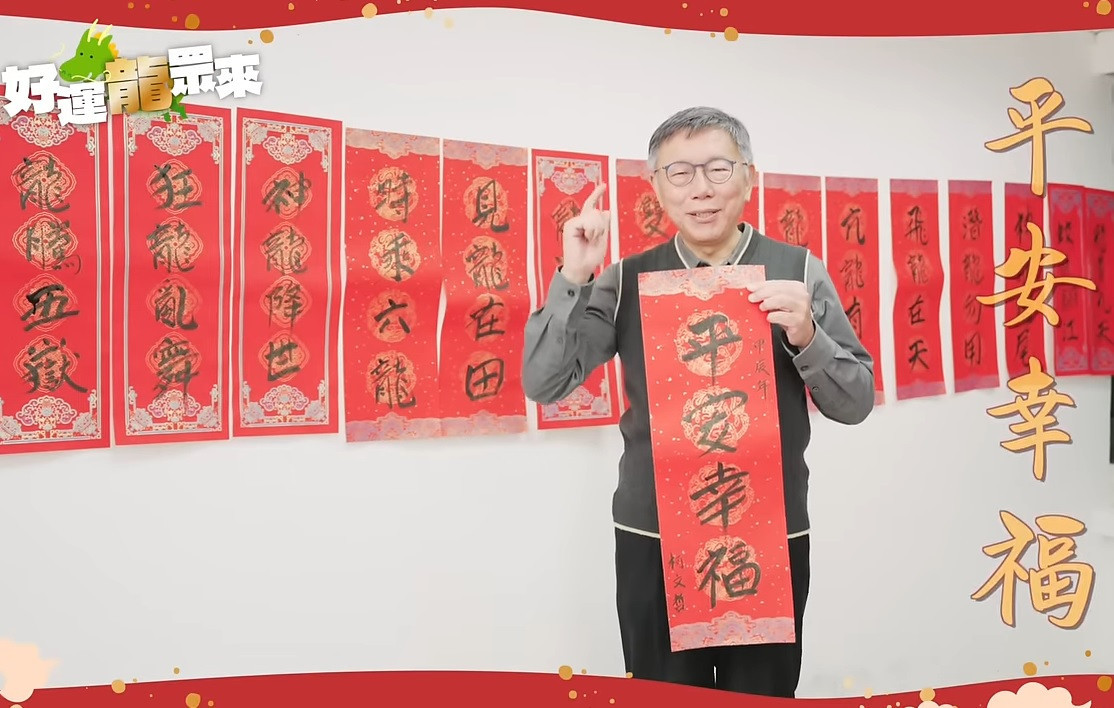 好運龍眾來
龍騰五嶽
狂龍亂舞
神龍降世
時乘六龍
見龍在田
龍
亢龍有
飛龍在天
潛龍勿用
平安幸福
柯文哲
平安幸福